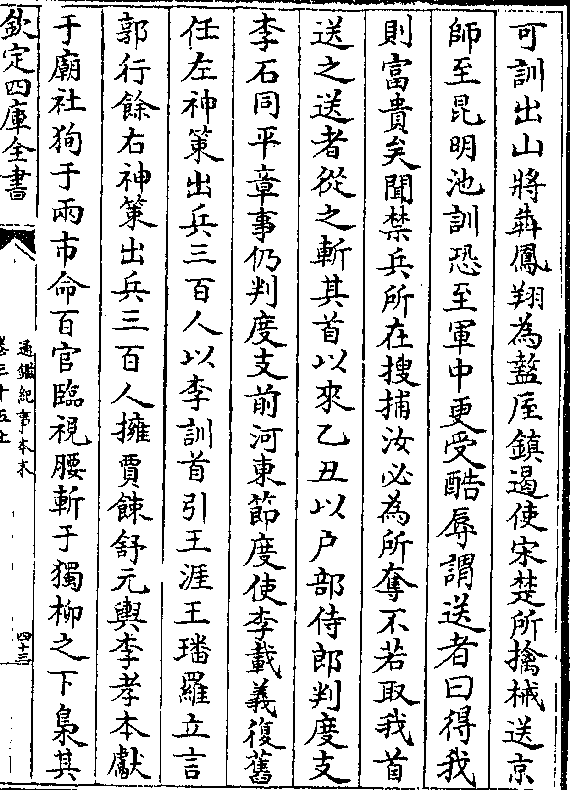 可訓出山將犇鳳翔為盩厔鎮遏使宋楚所擒械送京
師至昆明池訓恐至軍中更受酷辱謂送者曰得我
則富貴矣聞禁兵所在搜捕汝必為所奪不若取我首
送之送者從之斬其首以來乙丑以戶部侍郎判度支
李石同平章事仍判度支前河東節度使李載義復舊
任左神策出兵三百人以李訓首引王涯王璠羅立言
郭行餘右神策出兵三百人擁賈餗舒元輿李孝本獻
于廟社徇于兩市命百官臨視腰斬于獨柳之下梟其
欽定四庫全書
通鑑紀事本末
卷三十五上
四十三